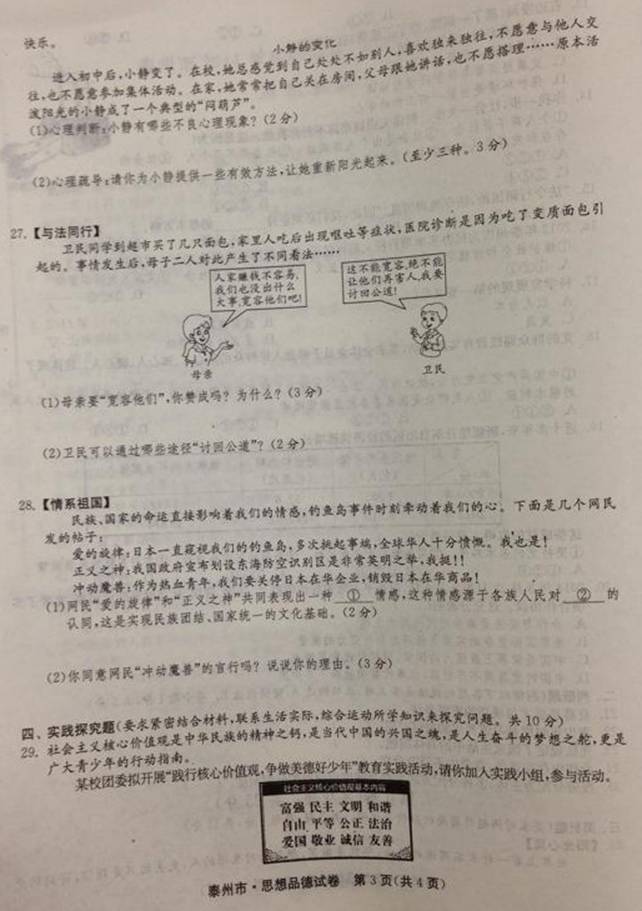 快乐。
小静的变化
进入初中后,小静变了。在校,她总感觉到自己处处不如别人,喜欢独来独往,不愿意与他人交
往,也不愿意参加集体活动。在家,她常常把自己关在房间,父母跟她讲话,也不愿搭理……原本活
泼阳光的小静成了一个典型的“闷葫芦”。
(1)心理判断:小静有哪些不良心理现象?(2分)
(2)心理疏导:请你为小静提供一些有效方法,让她重新阳光起来。(至少三种。3分)
27.【与法同行】
卫民同学到超市买了几只面包,家里人吃后出现呕吐等症状,医院诊断是因为吃了变质面包引
起的。事情发生后,母子二人对此产生了不同看法……
人家赚钱不容易,
我们也没出什么
大事,宽容他们吧!
这不能宽容,绝不能
让他们再害人,我要
讨回公道!
母亲
卫民
(1)母亲要“宽容他们”,你赞成吗?为什么?(3分)
(2)卫民可以通过哪些途径“讨回公道”?(2分)
28.【情系祖国】
民族、国家的命运直接影响着我们的情感,钓鱼岛事件时刻牵动着我们的心。下面是几个网民
发的帖子:
爱的旋律:日本一直窥视我们的钓鱼岛,多次挑起事端,全球华人十分愤慨。我也是!
正义之神:我国政府宣布划设东海防空识别区是非常英明之举,我挺!!
冲动魔兽:作为热血青年,我们要关停日本在华企业,销毁日本在华商品!
(1)网民“爱的旋律”和“正义之神”共同表现出一种 ① 情感,这种情感源于各族人民对 ② 的
认同,这是实现民族团结、国家统一的文化基础。(2分)
(2)你同意网民“冲动魔兽”的言行吗?说说你的理由。(3分)
四、实践探究题(要求紧密结合材料,联系生活实际,综合运动所学知识来探究问题。共10分)
29. 社会主义核心价值观是中华民族的精神之钙,是当代中国的兴国之魂,是人生奋斗的梦想之舵,更是
广大青少年的行动指南。
某校团委拟开展“践行核心价值观,争做美德好少年”教育实践活动,请你加入实践小组,参与活动。
社会主义核心价值观基本内容
富强 民主 文明 和谐
自由 平等 公正 法治
爱国 敬业 诚信 友善
泰州市·思想品德试卷 第3页(共4页)